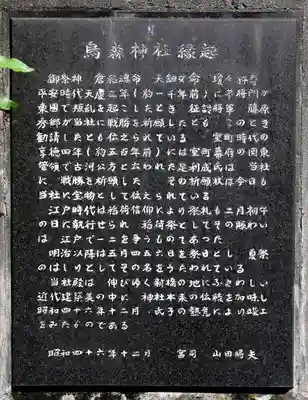 烏森神社縁起
御祭神　倉稲魂命　天鈿女命　瓊々杵尊
平安時代天慶三年（約一千年前）に平将門が
東国で叛乱を起こしたとき　征討将軍　藤原
秀郷が当社に戦勝を祈願した　このとき
勧請したとも伝えられている　室町時代の
享徳四年（約五百年前）には室町幕府の関東
管領で古河公方と云われた足利成氏は　当社
に　戦勝を祈願し　その祈願状は今日も
当社に宝物として伝えられている
江戸時代は稲荷信仰により祭礼も二月初午
の日に執行せられ　稲荷祭としてその賑わい
は　江戸で一二を争うものであった
明治以降は五月四五六日を祭日とし　夏祭
のはしりとしてその名をうたわれている
当社殿は　伸びゆく新橋の地にふさわしい
近代建築美の中に　神社本来の伝統を加味し
昭和四十六年十二月　氏子の熱党により竣工
をみたものである
昭和四十六年十二月　宮司　山田